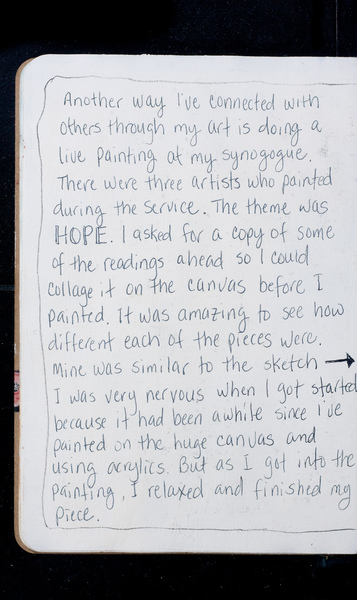 Another way I've connected with
others through my art is doing a
live painting at my synogogue.
There were three artists who painted
during the service. The theme was
HOPE. I asked for a copy of some
of the readings ahead so I could
collage it on the canvas before I
painted. It was amazing to see how
different each of the pieces were.
Mine was similar to the sketch →
I was very nervous when I got started
because it had been awhile since I've
painted on the huge canvas and
using acrylics. But as I got into the
painting, I relaxed and finished my
piece.